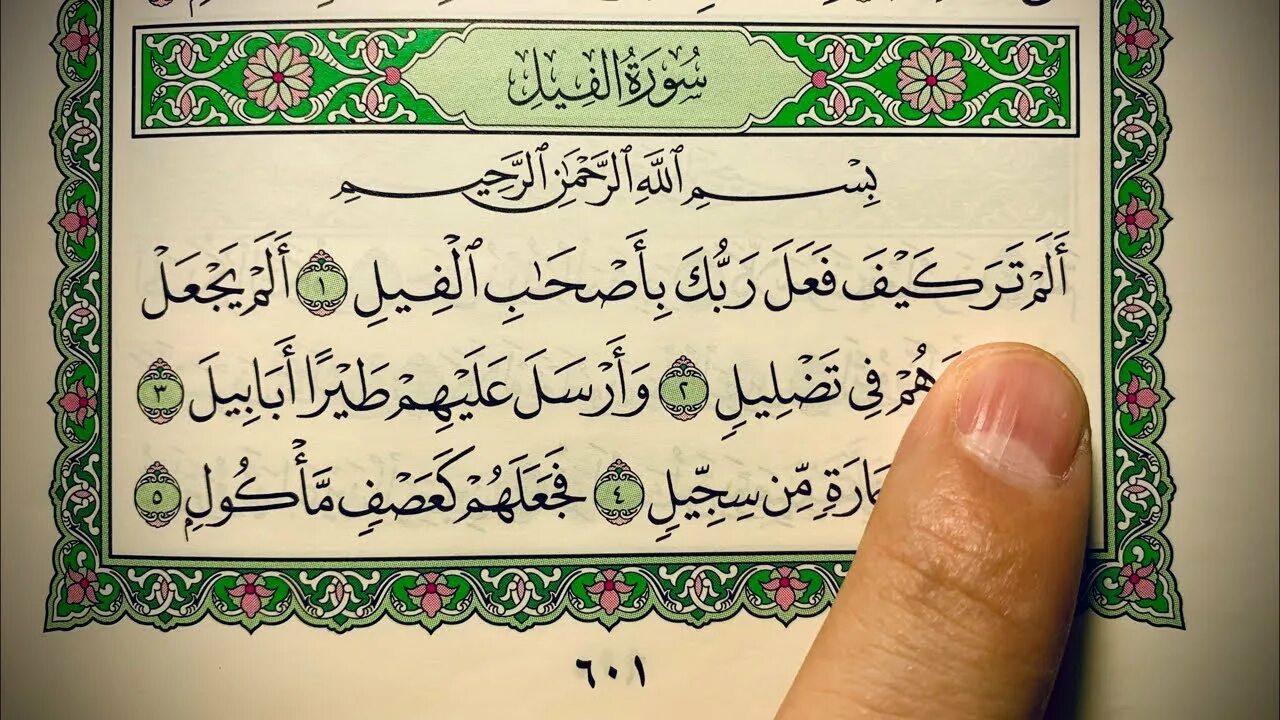 سُورَةُ الْفِيلِ
بِسْمِ ٱللَّهِ ٱلرَّحْمَٰنِ ٱلرَّحِيمِ
أَلَمْ تَرَ كَيْفَ فَعَلَ رَبُّكَ بِأَصْحَٰبِ ٱلْفِيلِ ١ أَلَمْ يَجْعَلْ
فِى تَضْلِيلٍ ٢ وَأَرْسَلَ عَلَيْهِمْ طَيْرًا أَبَابِيلَ ٣
مِّن سِجِّيلٍ ٤ فَجَعَلَهُمْ كَعَصْفٍ مَّأْكُولٍۭ ٥
٦٠١